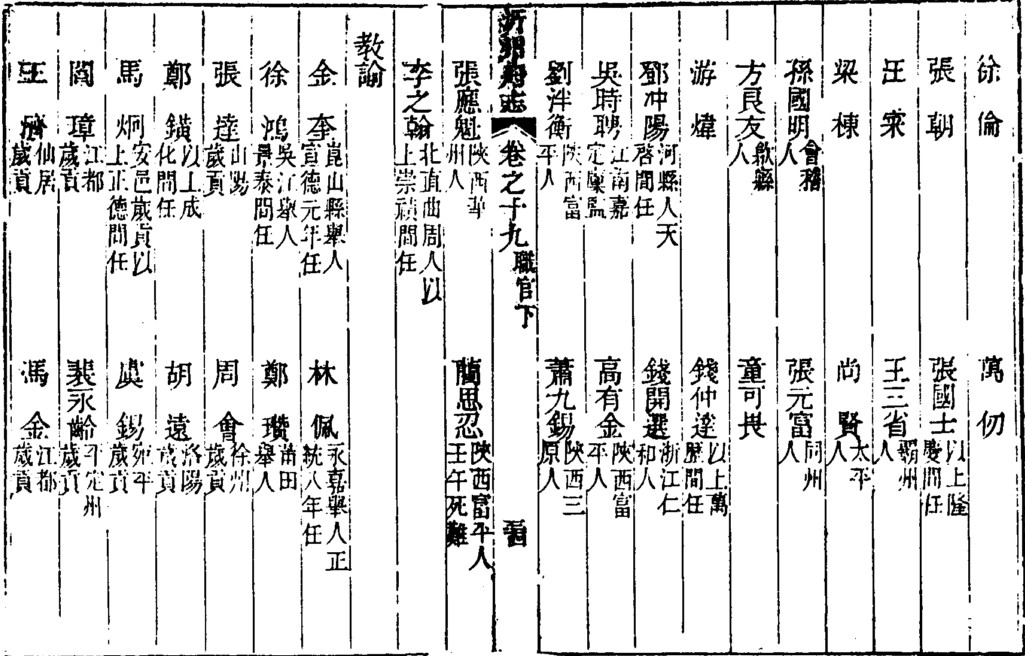 徐倫　萬仞
張朝　張國士以上隆慶間任
汪寀　王三省霸州人
梁棟　尚賢太平人
孫國明會稽人　張元富同州人
方良友歙縣人　童可畏
游煒　錢仲達以上萬曆間任
鄧冲陽河縣人天啓間任　錢開選浙江仁和人
吳時聘江南嘉定廩監　高有金陝西富平人
劉泮衡陝西富平人　蕭九錫陝西三原人
卷之十九　職官下
張應魁陝西華州人　藺思忍陝西富平人壬午死難
李之翰北直曲周人以上崇禎間任
教諭
金奎崑山縣舉人宣德元年任　林佩永嘉舉人正統八年任
徐鴻吳江舉人景泰間任　鄭瓚莆田舉人
張達山陽歲貢　周會徐州歲貢
鄭鐄以上成化間任　胡遠洛陽歲貢
馬炯安邑歲貢以上正德間任　虞錫宛平歲貢
閻璋江都歲貢　裴永齡平定州歲貢
王濟仙居歲貢　馮金江都歲貢